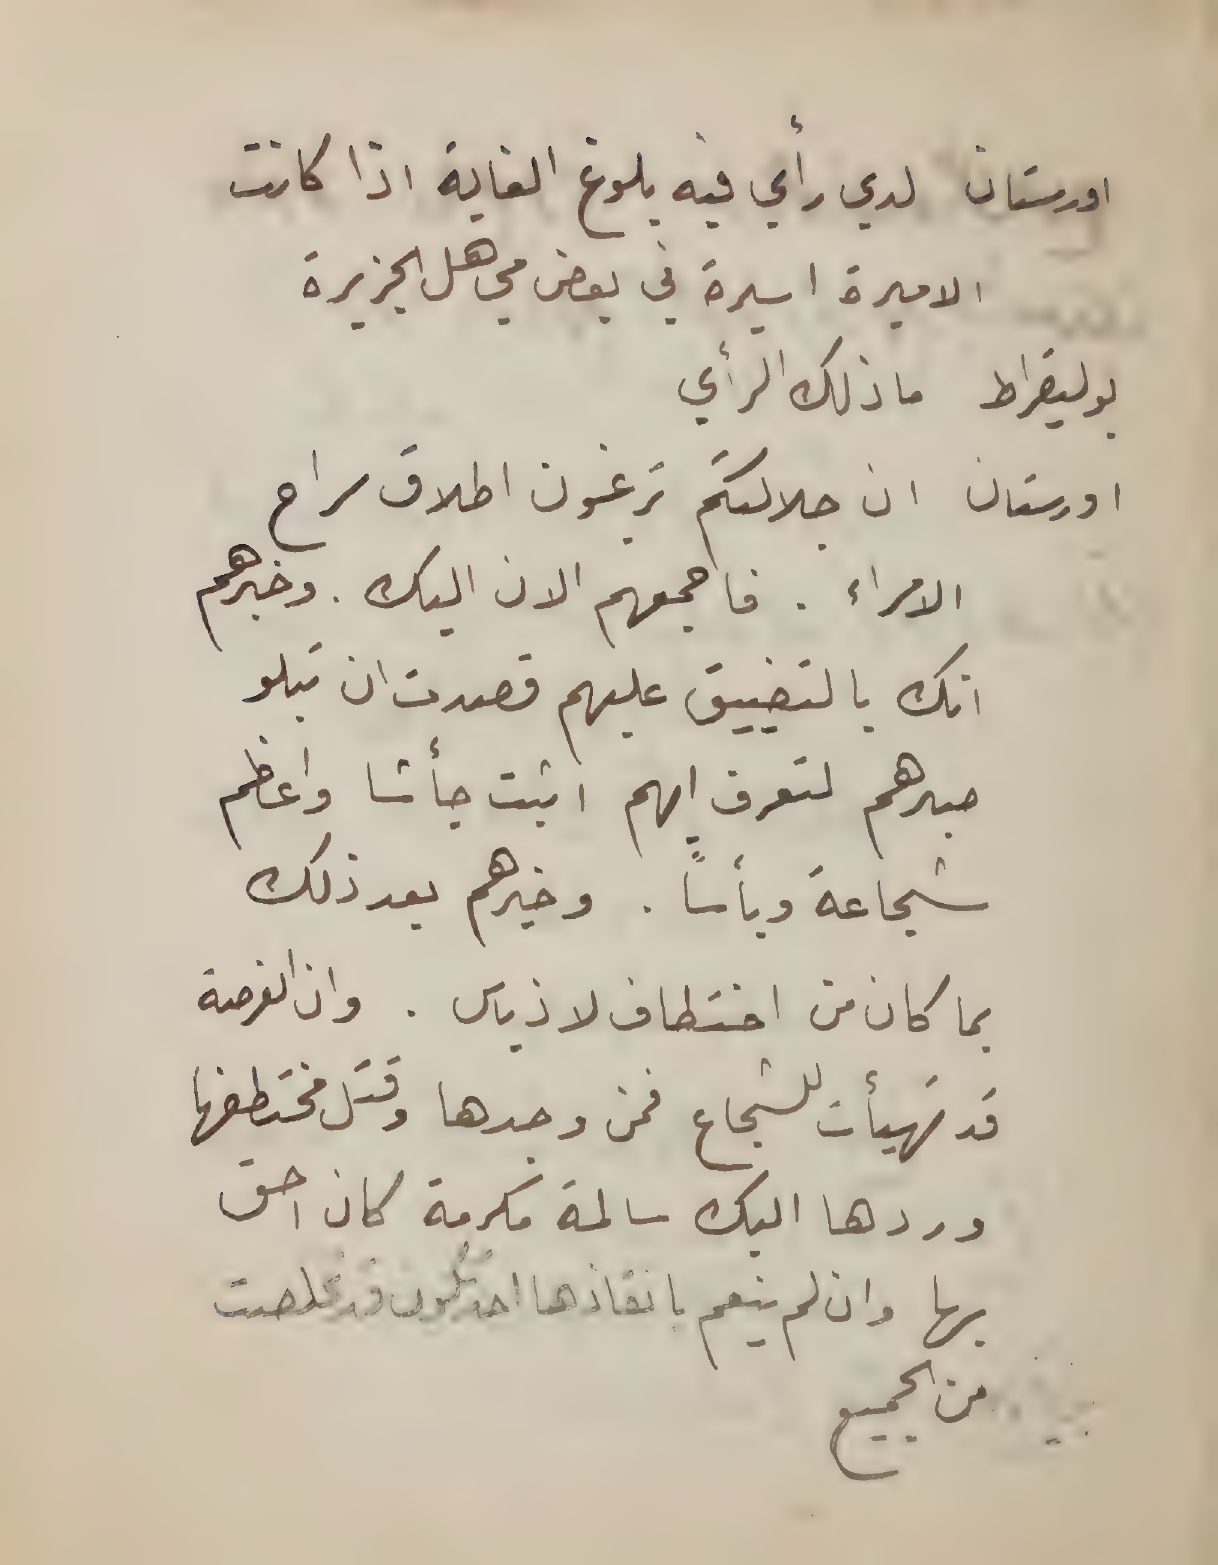 اورستان لدي رأي فيه بلوغ الغاية اذا كانت
الاميرة اسيرة في بعض مجاهل الجزيرة
بوليقراط ما ذلك الرأي
اورستان ان جلالتكم ترغبون اطلاق سراح
الامراء . فاجمعهم الان اليك . وخبرهم
انك بالتضييق عليهم قصدت ان تبلو
صبرهم لتعرف ايهم اثبت جأشا واعظم
شجاعة وبأساً . وخبرهم بعد ذلك
بما كان من اختطاف لاذياس . وان الفرصة
قد تهيأت للشجاع فمن وجدها وقتل مختطفها
وردها اليك سالمة مكرمة كان احق
بها وان لم ينعم بانقاذها احد تكون قد تخلصت
من الجميع